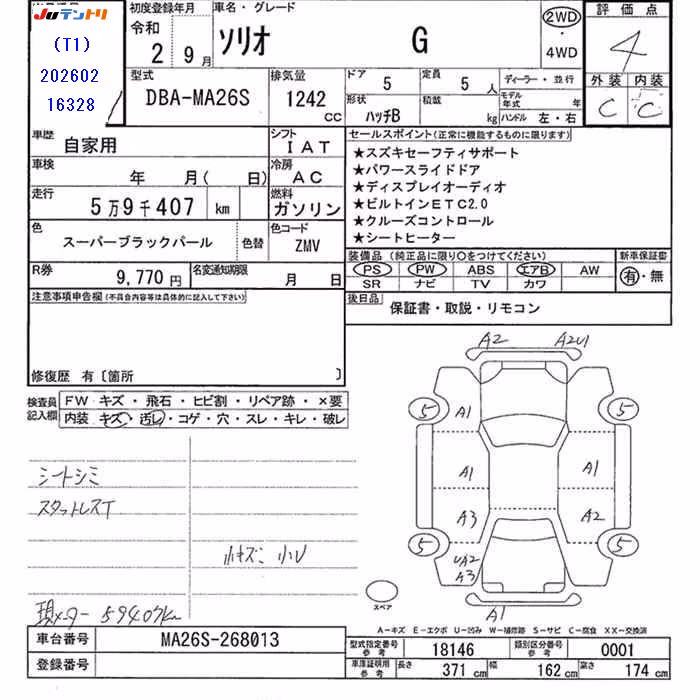 Juテントリ
(T1)
202602
16328
初度登録年月
令和
2 9月
車名・グレード
ソリオ G
2WD
・
4WD
評価点
4
外装 内装
C C
型式
DBA-MA26S
排気量
1242
cc
ドア
5
定員
5人
形状
ハッチB
積載
kg
ディーラー・並行
モデル年式 年
ハンドル 左・右
車歴
自家用
シフト
IAT
車検
年 月( 日)
冷房
AC
走行
5万9千407 km
燃料
ガソリン
色
スーパーブラックパール
色替
色コード
ZMV
R券
9,770円
名変通知期限
月 日
セールスポイント(正常に機能するものに限ります)
★スズキセーフティサポート
★パワースライドドア
★ディスプレイオーディオ
★ビルトインETC2.0
★クルーズコントロール
★シートヒーター
装備品 (純正品に限り○をつけてください)
新車保証書
PS PW ABS エアB AW
SR ナビ TV カワ
有・無
後日品
保証書・取説・リモコン
注意事項申告欄(不具合内容等は具体的に記入して下さい)
修復歴 有〔箇所 〕
検査員記入欄
FW キズ・飛石・ヒビ割・リペア跡・×要
内装 キズ・汚レ・コゲ・穴・スレ・キレ・破レ
シートシミ
スタットレスT
小キズ 小U
現メーター 59407km
A2 A2U1
5 A1 5
A1 A1
A3 A2
5 UA2 5
A3
A1
スペア
A-キズ E-エクボ U-凹み W-補修跡 S-サビ C-腐食 XX-交換済
車台番号
MA26S-268013
登録番号
型式指定番号
参考
18146
類別区分番号
参考
0001
車庫証明用
参考
長さ 371 cm
幅 162 cm
高さ 174 cm